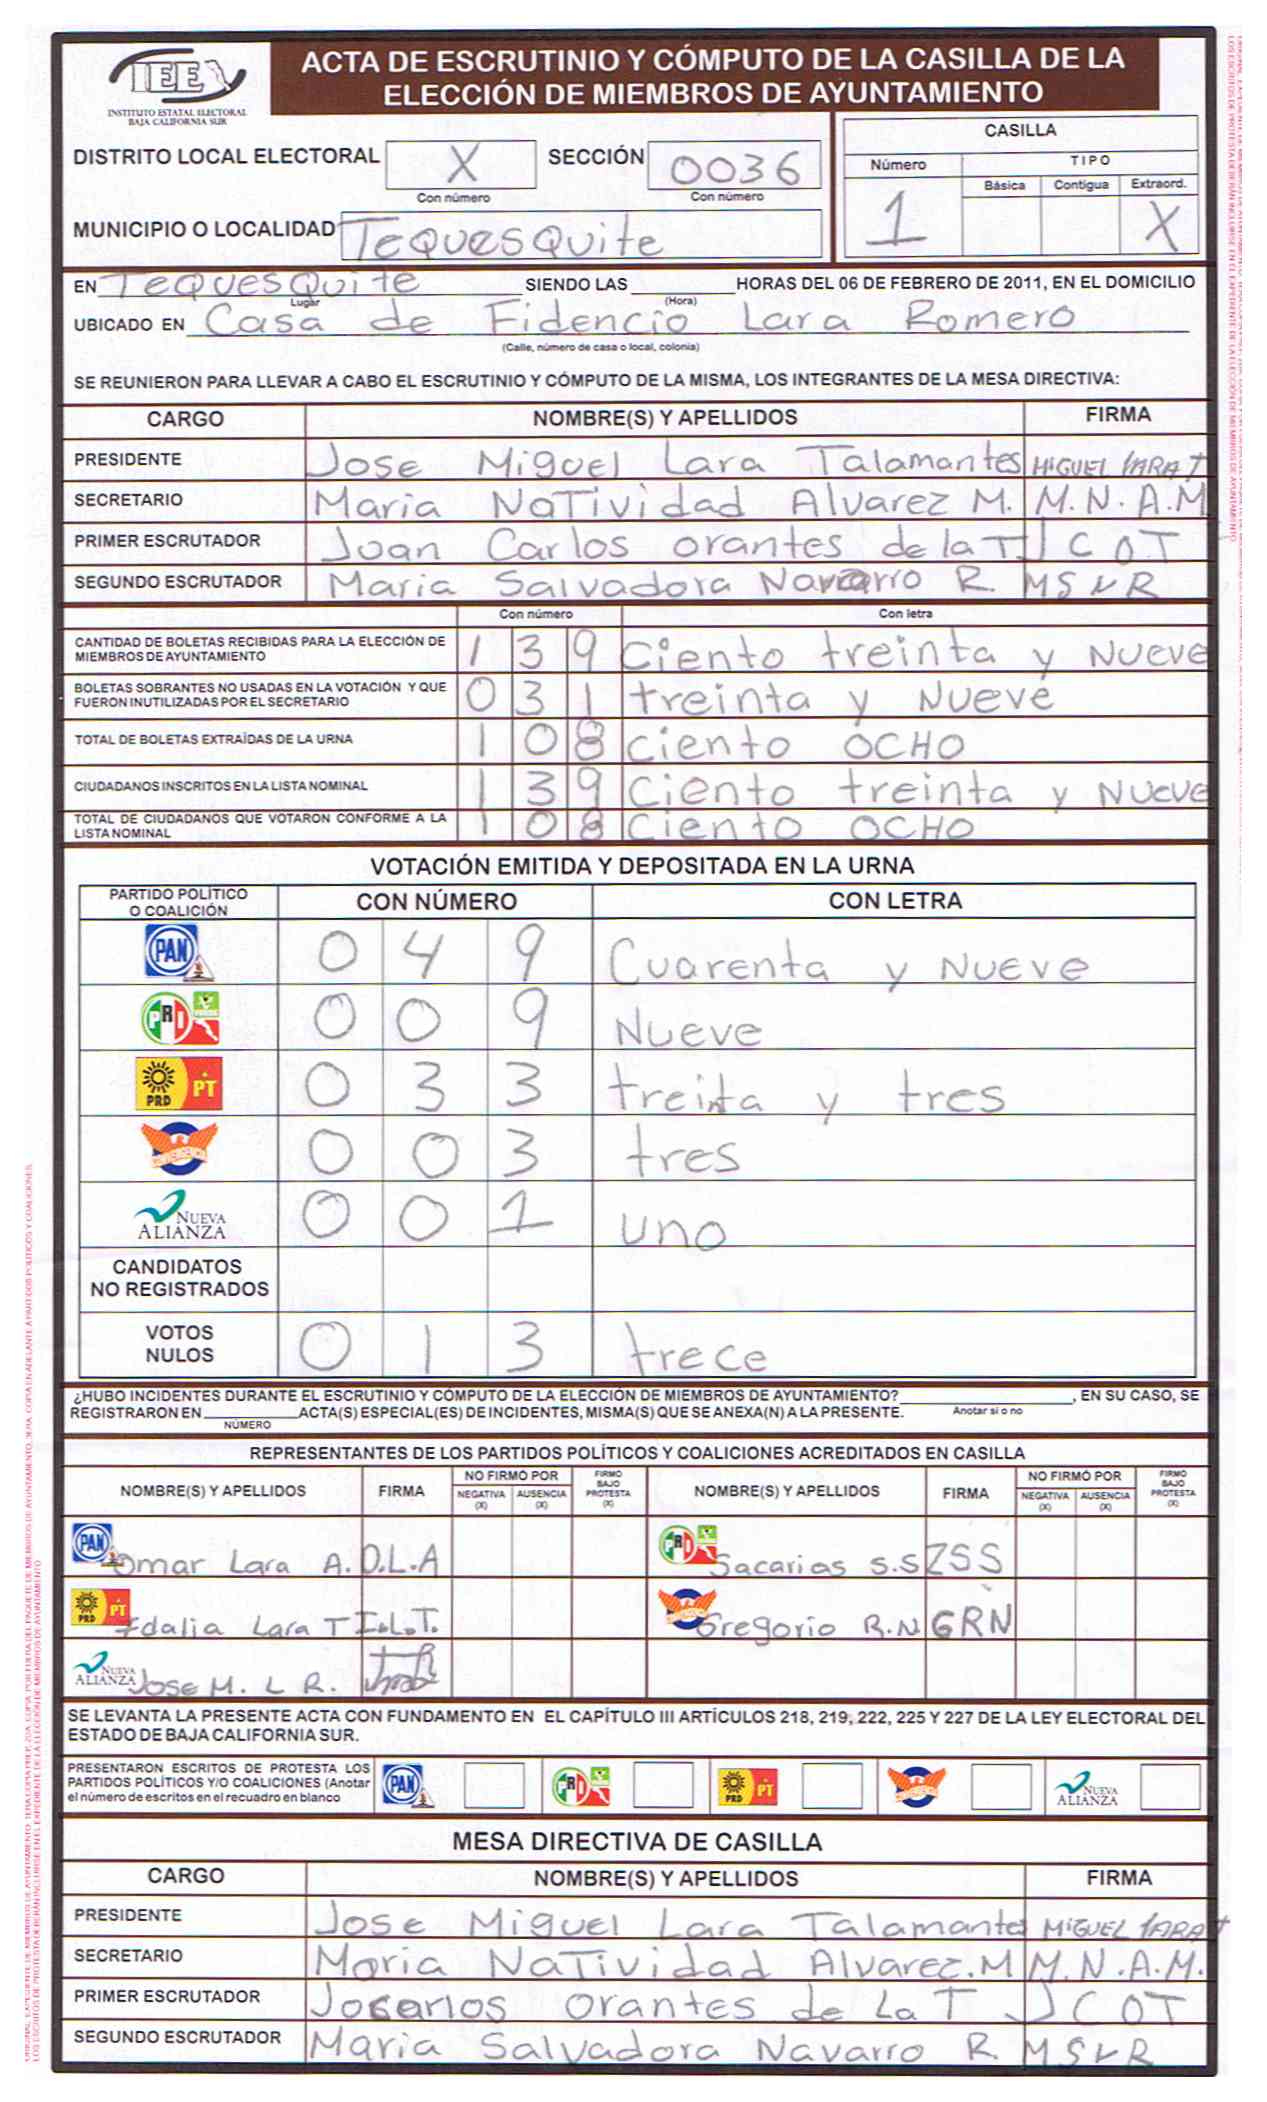 IEE
INSTITUTO ESTATAL ELECTORAL
BAJA CALIFORNIA SUR
ACTA DE ESCRUTINIO Y CÓMPUTO DE LA CASILLA DE LA
ELECCIÓN DE MIEMBROS DE AYUNTAMIENTO
DISTRITO LOCAL ELECTORAL X SECCIÓN 0036
Con número Con número
MUNICIPIO O LOCALIDAD TequesQuite
CASILLA
Número TIPO
Básica Contigua Extraord.
1 X
EN TequesQuite SIENDO LAS HORAS DEL 06 DE FEBRERO DE 2011, EN EL DOMICILIO
Lugar (Hora)
UBICADO EN Casa de Fidencio Lara Romero
(Calle, número de casa o local, colonia)
SE REUNIERON PARA LLEVAR A CABO EL ESCRUTINIO Y CÓMPUTO DE LA MISMA, LOS INTEGRANTES DE LA MESA DIRECTIVA:
CARGO NOMBRE(S) Y APELLIDOS FIRMA
PRESIDENTE Jose Miguel Lara Talamantes MIGUEL LARA T
SECRETARIO Maria NaTividad Alvarez M. M.N.A.M
PRIMER ESCRUTADOR Juan Carlos orantes de la T J C O T
SEGUNDO ESCRUTADOR Maria Salvadora Navarro R. MSNR
Con número Con letra
CANTIDAD DE BOLETAS RECIBIDAS PARA LA ELECCIÓN DE
MIEMBROS DE AYUNTAMIENTO 1 3 9 Ciento treinta y Nueve
BOLETAS SOBRANTES NO USADAS EN LA VOTACIÓN Y QUE
FUERON INUTILIZADAS POR EL SECRETARIO 0 3 1 treinta y Nueve
TOTAL DE BOLETAS EXTRAÍDAS DE LA URNA 1 0 8 Ciento OCHO
CIUDADANOS INSCRITOS EN LA LISTA NOMINAL 1 3 9 Ciento treinta y Nueve
TOTAL DE CIUDADANOS QUE VOTARON CONFORME A LA
LISTA NOMINAL 1 0 8 Ciento OCHO
VOTACIÓN EMITIDA Y DEPOSITADA EN LA URNA
PARTIDO POLÍTICO
O COALICIÓN CON NÚMERO CON LETRA
PAN 0 4 9 Cuarenta y Nueve
PRI 0 0 9 Nueve
PRD PT 0 3 3 treinta y tres
CONVERGENCIA 0 0 3 tres
NUEVA ALIANZA 0 0 1 uno
CANDIDATOS
NO REGISTRADOS
VOTOS
NULOS 0 1 3 trece
¿HUBO INCIDENTES DURANTE EL ESCRUTINIO Y CÓMPUTO DE LA ELECCIÓN DE MIEMBROS DE AYUNTAMIENTO? , EN SU CASO, SE
REGISTRARON EN ACTA(S) ESPECIAL(ES) DE INCIDENTES, MISMA(S) QUE SE ANEXA(N) A LA PRESENTE. Anotar si o no
NÚMERO
REPRESENTANTES DE LOS PARTIDOS POLÍTICOS Y COALICIONES ACREDITADOS EN CASILLA
NOMBRE(S) Y APELLIDOS FIRMA NO FIRMÓ POR NEGATIVA (X) AUSENCIA (X) FIRMO BAJO PROTESTA (X) NOMBRE(S) Y APELLIDOS FIRMA NO FIRMÓ POR NEGATIVA (X) AUSENCIA (X) FIRMO BAJO PROTESTA (X)
PAN Omar Lara A. O.L.A PRI Sacarias S.S ZSS
PRD PT Idalia Lara T I.L.T. CONVERGENCIA Gregorio R.N GRN
NUEVA ALIANZA Jose M. L R.
SE LEVANTA LA PRESENTE ACTA CON FUNDAMENTO EN EL CAPÍTULO III ARTÍCULOS 218, 219, 222, 225 Y 227 DE LA LEY ELECTORAL DEL
ESTADO DE BAJA CALIFORNIA SUR.
PRESENTARON ESCRITOS DE PROTESTA LOS
PARTIDOS POLÍTICOS Y/O COALICIONES (Anotar
el número de escritos en el recuadro en blanco PAN PRI PRD PT CONVERGENCIA NUEVA ALIANZA
MESA DIRECTIVA DE CASILLA
CARGO NOMBRE(S) Y APELLIDOS FIRMA
PRESIDENTE Jose Miguel Lara Talamante MIGUEL LARA T
SECRETARIO Maria NaTividad Alvarez.M M.N.A.M.
PRIMER ESCRUTADOR Jocarlos Orantes de La T J C O T
SEGUNDO ESCRUTADOR Maria Salvadora Navarro R. MSNR